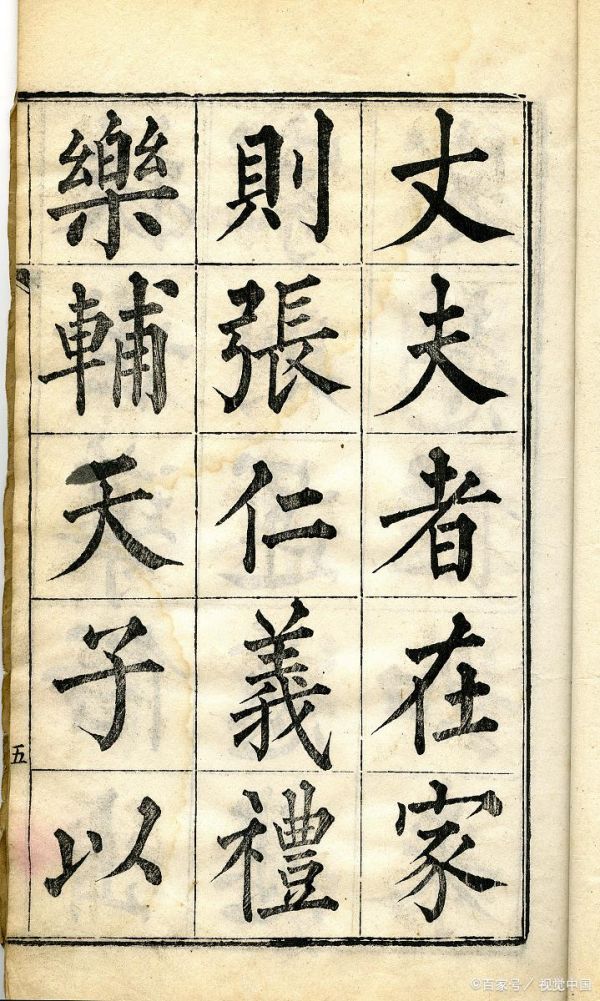 丈夫者在家
則張仁義禮
樂輔天子以
五
©百家号/视觉中国